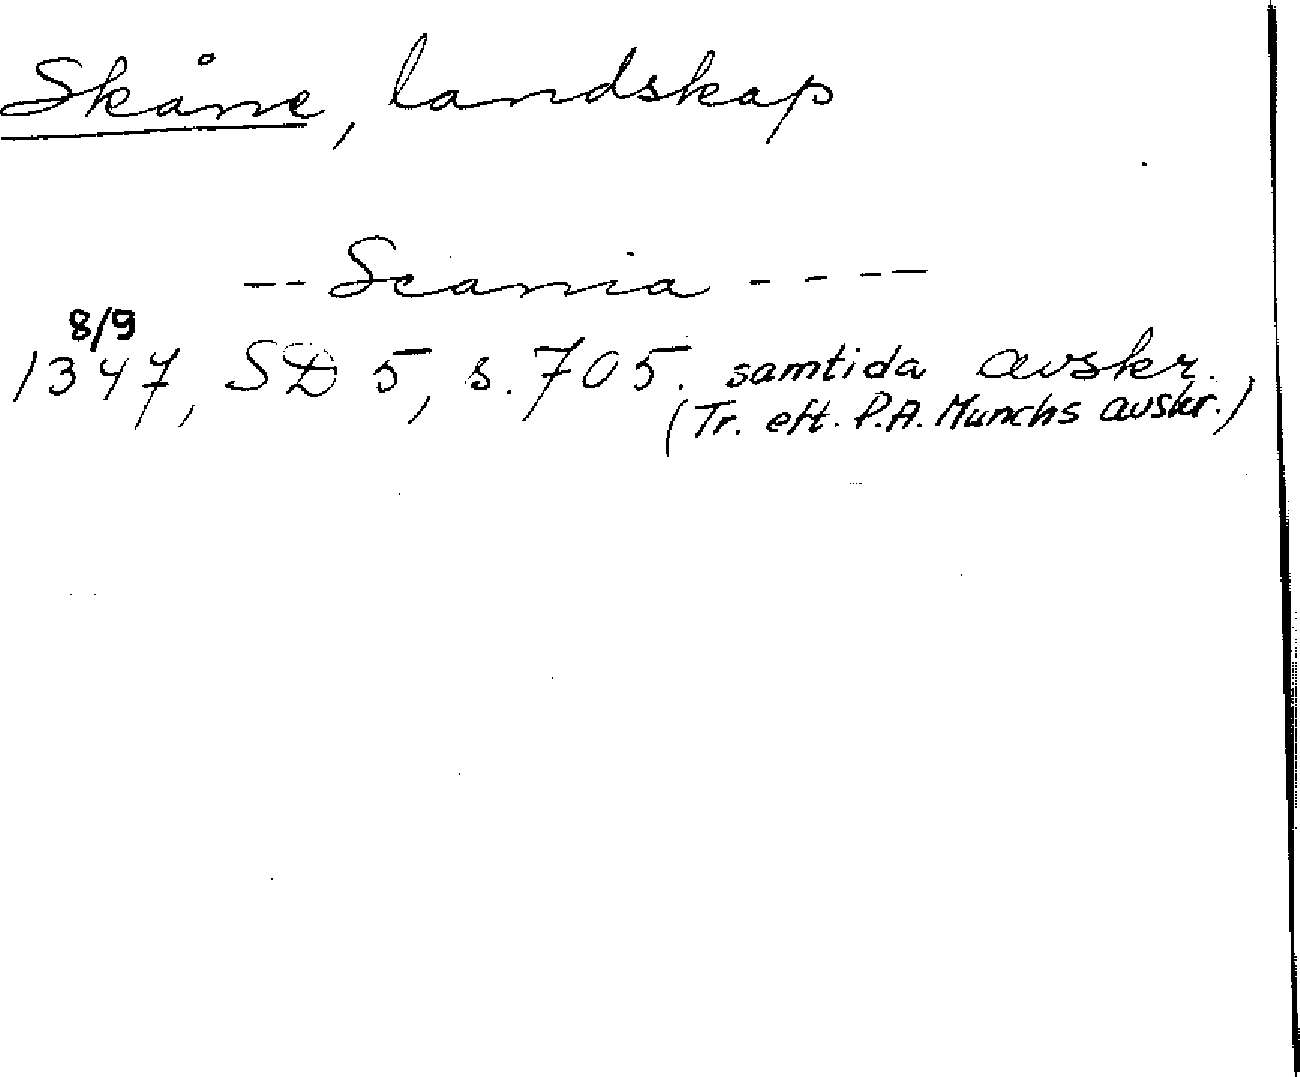 Skåne, landskap
-- Scania ----
8/9
1347, SD 5, s. 705. samtida avskr.
(Tr. eft. P.A. Munchs avskr.)